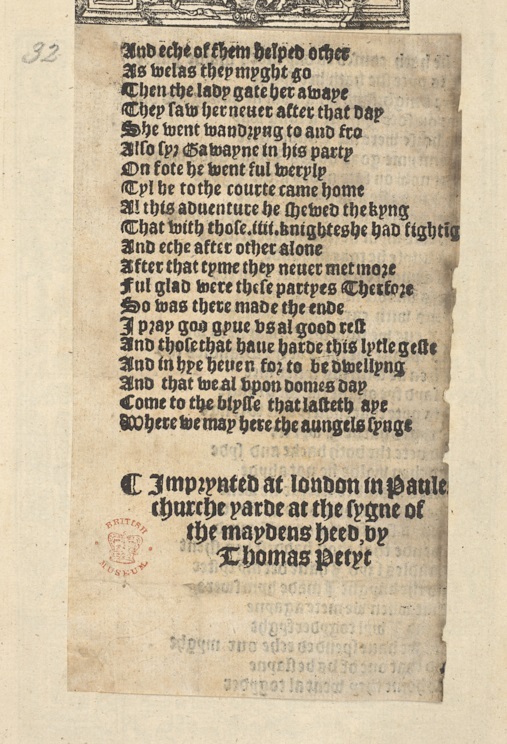 32
And eche of them helped other
As welas they myght go
Then the lady gate her awaye
They saw her neuer after that day
She went wandryng to and fro
Also syr Gawayne in his party
On fote he went ful weryly
Tyl he to the courte came home
Al this aduenture he shewed the kyng
That with those.iiii.knighteshe had fightīg
And eche after other alone
After that tyme they neuer met more
Ful glad were these partyes Therfore
So was there made the ende
I pray god gyue vs al good rest
And those that haue harde this lytle geste
And in hye heuen for to be dwellyng
And that we al vpon domes day
Come to the blysse that lasteth aye
Where we may here the aungels synge
¶ Imprynted at london in Paule
churche yarde at the sygne of
the maydens heed, by
Thomas Petyt
BRITISH
MUSEUM